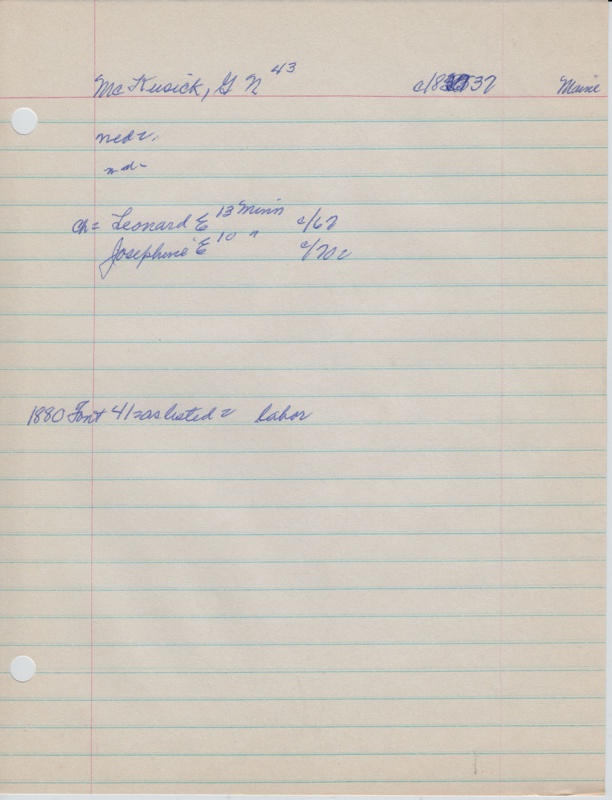 McKusick, G N 43 c/837 Maine
md=
nd-
ch= Leonard E 13 Minn c/67
Josephine E 10 " c/70=
1880 Font 41=as listed= labor